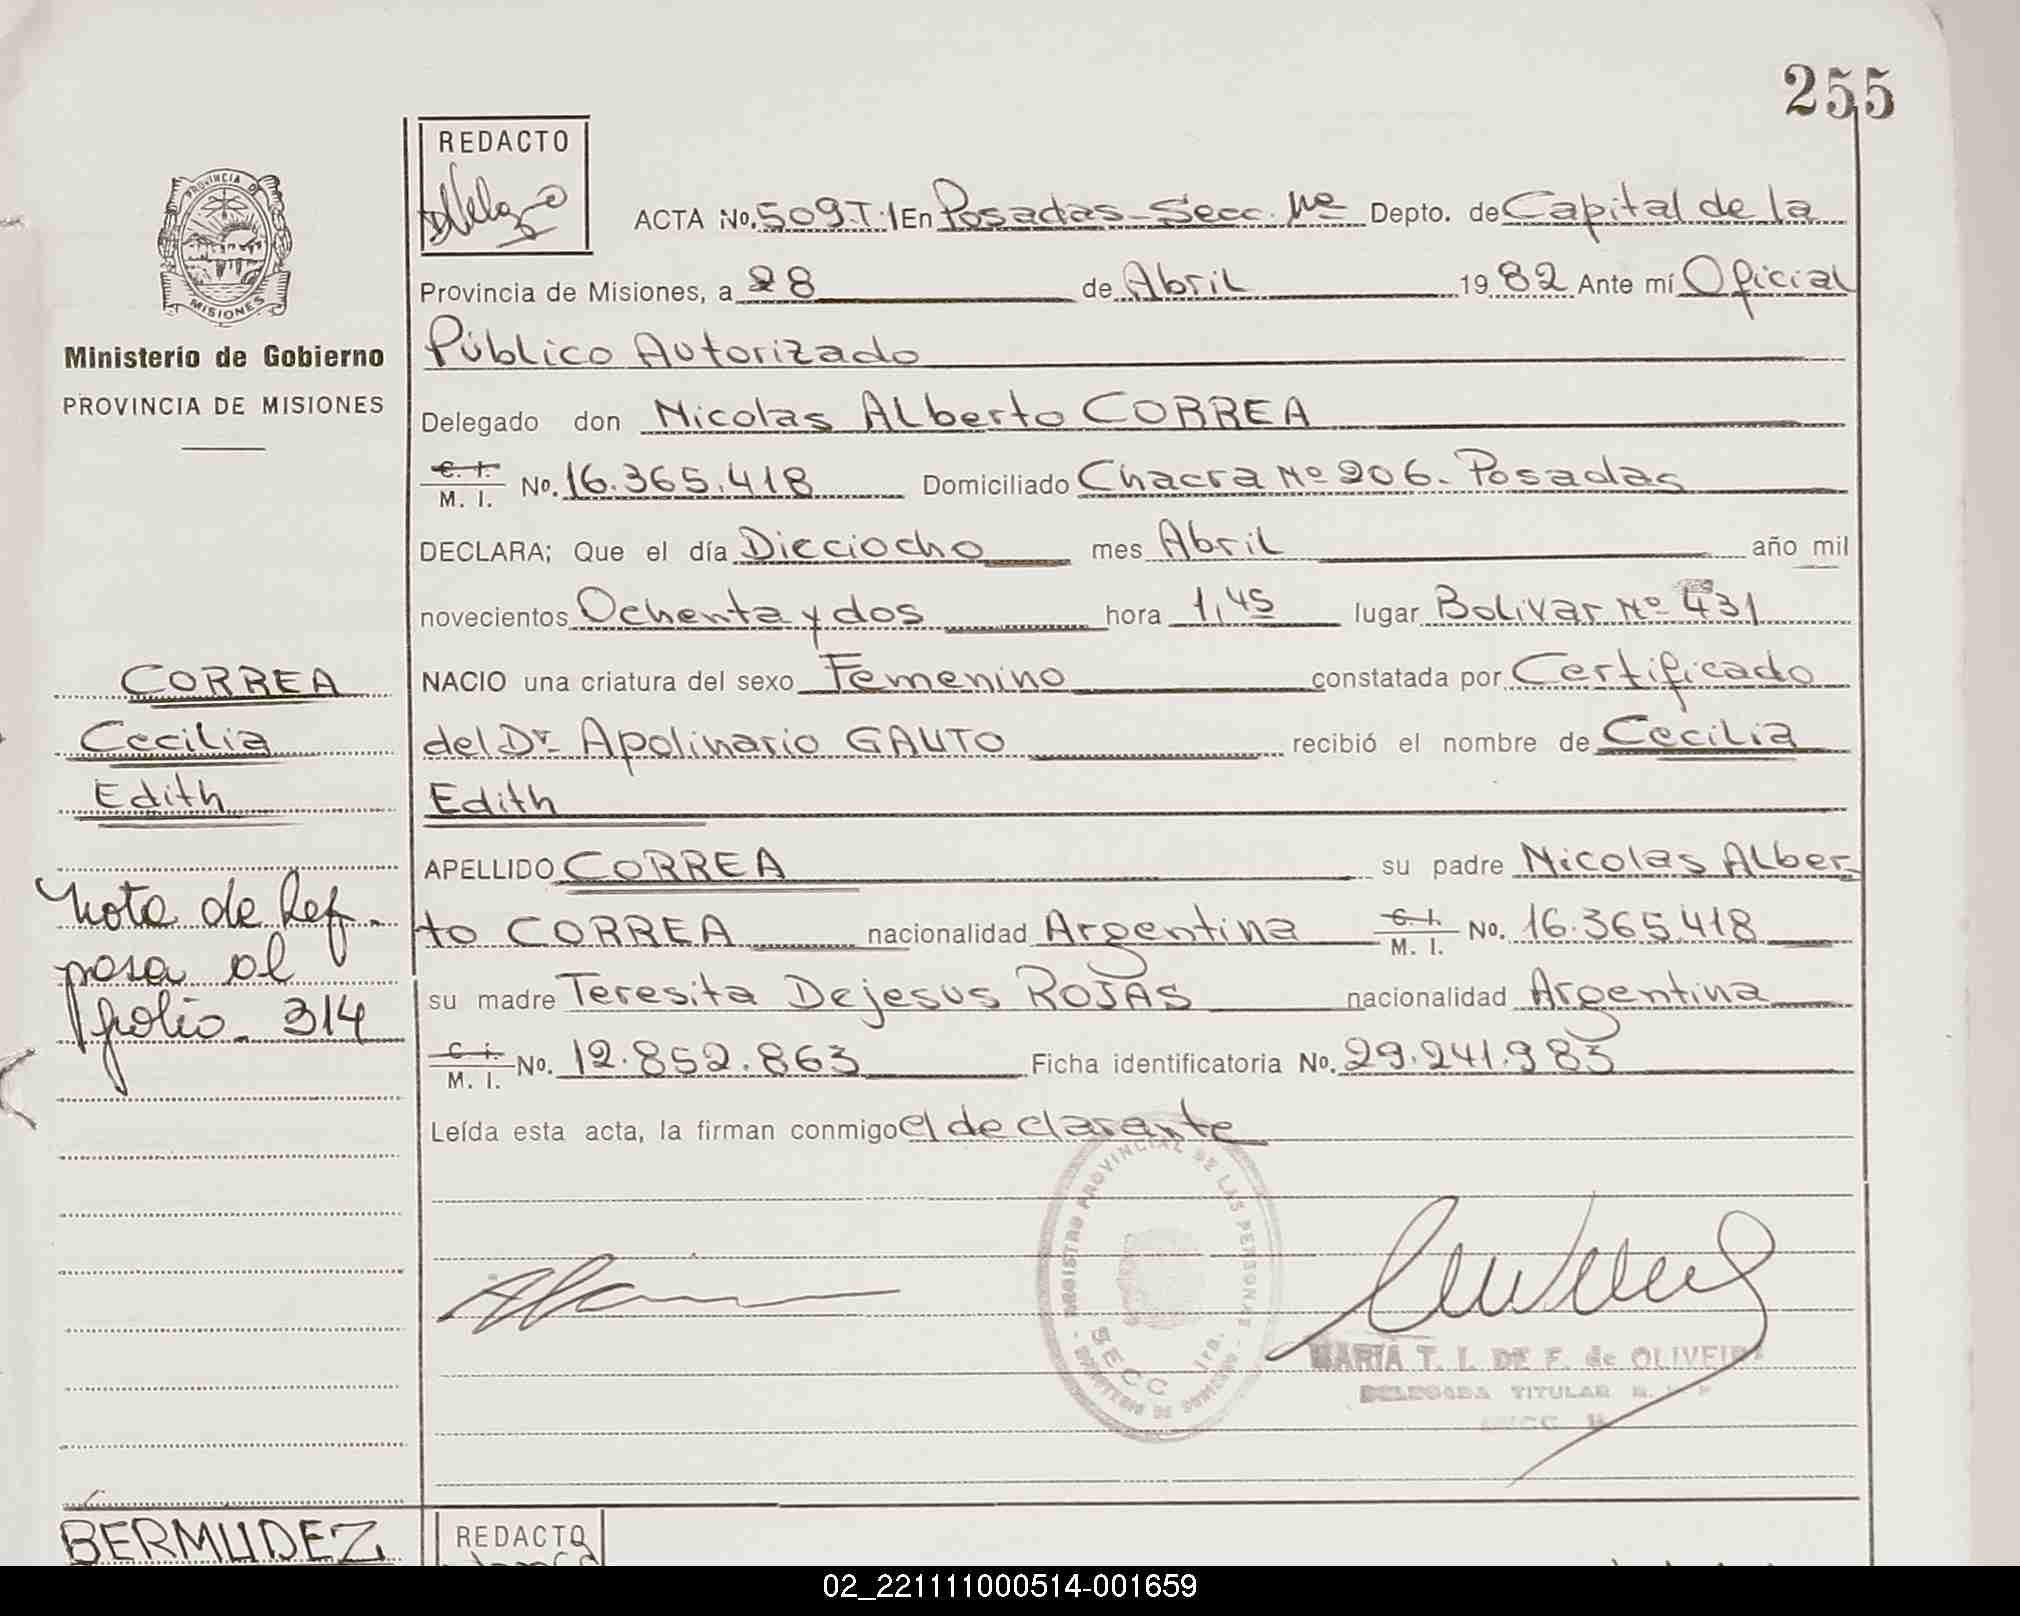 255
REDACTO
ACTA No. 509.T.1 En Posadas-Secc. 1ª Depto. de Capital de la
PROVINCIA DE MISIONES
Provincia de Misiones, a 28 de Abril 1982 Ante mí Oficial
Ministerio de Gobierno
PROVINCIA DE MISIONES
Público Autorizado
Delegado don Nicolas Alberto CORREA
C. I. M. I. No. 16.365.418 Domiciliado Chacra Nº 206. Posadas
DECLARA; Que el día Dieciocho mes Abril año mil
novecientos Ochenta y dos hora 1,45 lugar Bolivar Nº 431
CORREA
NACIO una criatura del sexo Femenino constatada por Certificado
Cecilia
del Dr. Apolinario GAUTO recibió el nombre de Cecilia
Edith
Edith
APELLIDO CORREA su padre Nicolas Alber-
Nota de Ref.
to CORREA nacionalidad Argentina C. I. M. I. No. 16.365.418
pasa al
su madre Teresita Dejesus ROJAS nacionalidad Argentina
folio. 314
C. I. M. I. No. 12.852.863 Ficha identificatoria No. 29.241.983
Leída esta acta, la firman conmigo el declarante
REGISTRO PROVINCIAL DE LAS PERSONAS - MINISTERIO DE GOBIERNO -
SECC 1ra.
MARIA T. I. DE F. de OLIVEIRA
DELEGADA TITULAR
BERMUDEZ
REDACTO
02_221111000514-001659